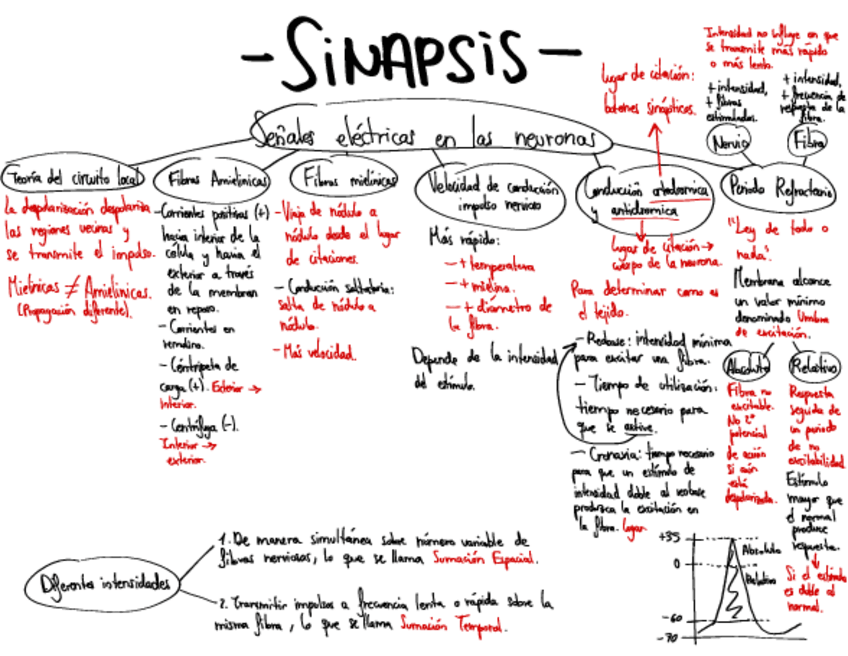 - SINAPSIS -
Señales eléctricas en las neuronas
Teoría del circuito local
La despolarización despolariza
las regiones vecinas y
se transmite el impulso.
Mielnicas ≠ Amielinicas.
(Propagación diferente).
Fibras Amielinicas
- Corrientes positivas (+)
hacia interior de la
célula y hacia el
exterior a través
de la membran
en reposo.
- Corrientes en
remolino.
- Céntripeta de
carga (+). Exterior →
Interior.
- Centrífuga (-).
Interior →
exterior.
Fibras mielínicas
- Viaja de nódulo a
nódulo desde el lugar
de citaciones.
- Conducción saltatoria:
salta de nódulo a
nódulo.
- Más velocidad.
Velocidad de conducción
impulso nervioso
Más rápido:
- + temperatura
- + mielina.
- + diámetro de
la fibra.
Depende de la intensidad
del estímulo.
lugar de citación:
botones sinápticos.
Conducción ortodromica
y antidromica
lugar de citación →
cuerpo de la neurona.
Para determinar como es
el tejido.
- Reobase: intensidad mínima
para excitar una fibra.
- Tiempo de utilización:
tiempo necesario para
que se active.
- Cronaxia: tiempo necesario
para que un estímulo de
intensidad doble al reobase
produzca la excitación en
la fibra. lugar
Intensidad no influye en que
se transmite más rápido
o más lento.
+ intensidad,
+ fibras
estimuladas.
Nervio
+ intensidad,
+ frecuencia de
respuesta de la
fibra.
Fibra
Periodo Refractario
"Ley de todo o
nada".
Membrana alcance
un valor mínimo
denominado Umbral
de excitación.
Absoluto
Fibra no
excitable.
No 2º
potencial
de acción
si aún
está
despolarizada.
Relativo
Respuesta
seguida de
un periodo
de no
excitabilidad
Estímulo
mayor que
el normal
produce
respuesta.
Si el estímulo
es doble al
normal.
+35
0
-60
-70
Absoluto
Relativo
Diferentes intensidades
1. De manera simultánea sobre número variable de
fibras nerviosas, lo que se llama Sumación Espacial.
2. Transmitir impulsos a frecuencia lenta o rápida sobre la
misma fibra, lo que se llama Sumación Temporal.